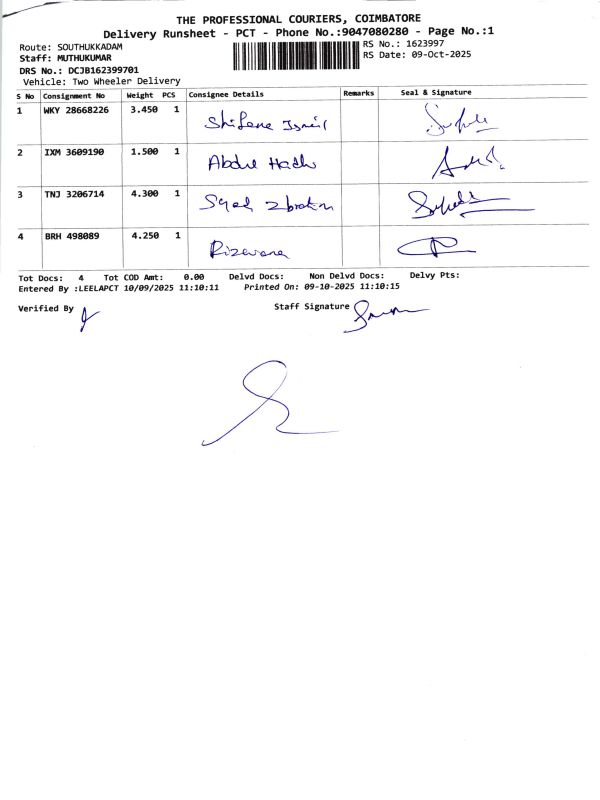 THE PROFESSIONAL COURIERS, COIMBATORE
Delivery Runsheet - PCT - Phone No.:9047080280 - Page No.:1
Route: SOUTHUKKADAM
RS No.: 1623997
Staff: MUTHUKUMAR
RS Date: 09-Oct-2025
DRS No.: DCJB162399701
Vehicle: Two Wheeler Delivery
S No Consignment No Weight PCS Consignee Details Remarks Seal & Signature
1 WKY 28668226 3.450 1
2 IXM 3609190 1.500 1 Abdul
3 TNJ 3206714 4.300 1 Syed
4 BRH 498089 4.250 1 Rizwana
Tot Docs: 4 Tot COD Amt: 0.00 Delvd Docs: Non Delvd Docs: Delvy Pts:
Entered By :LEELAPCT 10/09/2025 11:10:11 Printed On: 09-10-2025 11:10:15
Verified By
Staff Signature